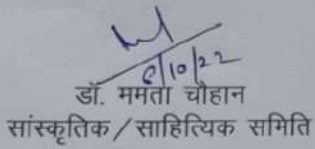 डॉ. ममता चौहान
सांस्कृतिक / साहित्यिक समिति